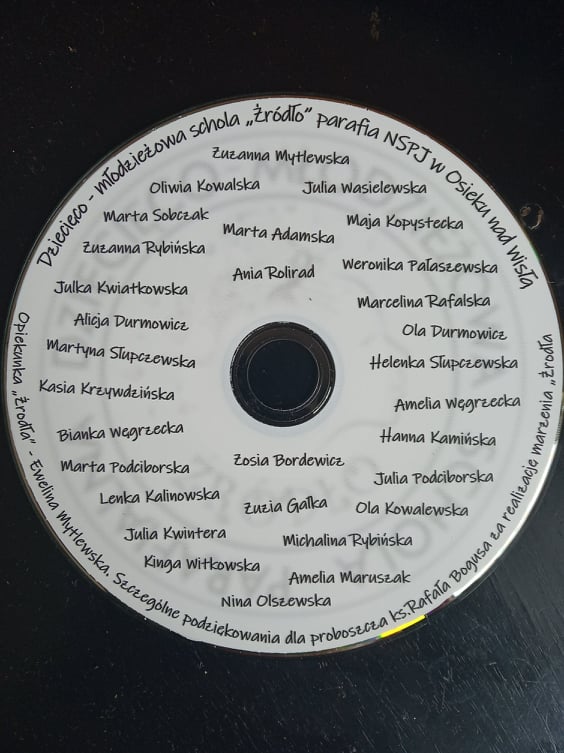 Dziecięco - młodzieżowa schola „Źródło” parafia NSPJ w Osieku nad Wisłą
Zuzanna Mytlewska
Oliwia Kowalska
Julia Wasielewska
Marta Sobczak
Marta Adamska
Maja Kopystecka
Zuzanna Rybińska
Ania Rolirad
Weronika Pałaszewska
Julka Kwiatkowska
Marcelina Rafalska
Alicja Durmowicz
Ola Durmowicz
Martyna Słupczewska
Helenka Słupczewska
Kasia Krzywdzińska
Amelia Węgrzecka
Bianka Węgrzecka
Hanna Kamińska
Marta Podciborska
Zosia Bordewicz
Julia Podciborska
Lenka Kalinowska
Zuzia Gałka
Ola Kowalewska
Julia Kwintera
Michalina Rybińska
Kinga Witkowska
Amelia Maruszak
Nina Olszewska
Opiekunka „Źrodła” - Ewelina Mytlewska. Szczególne podziękowania dla proboszcza ks.Rafała Bogusa za realizację marzenia „Źrodła